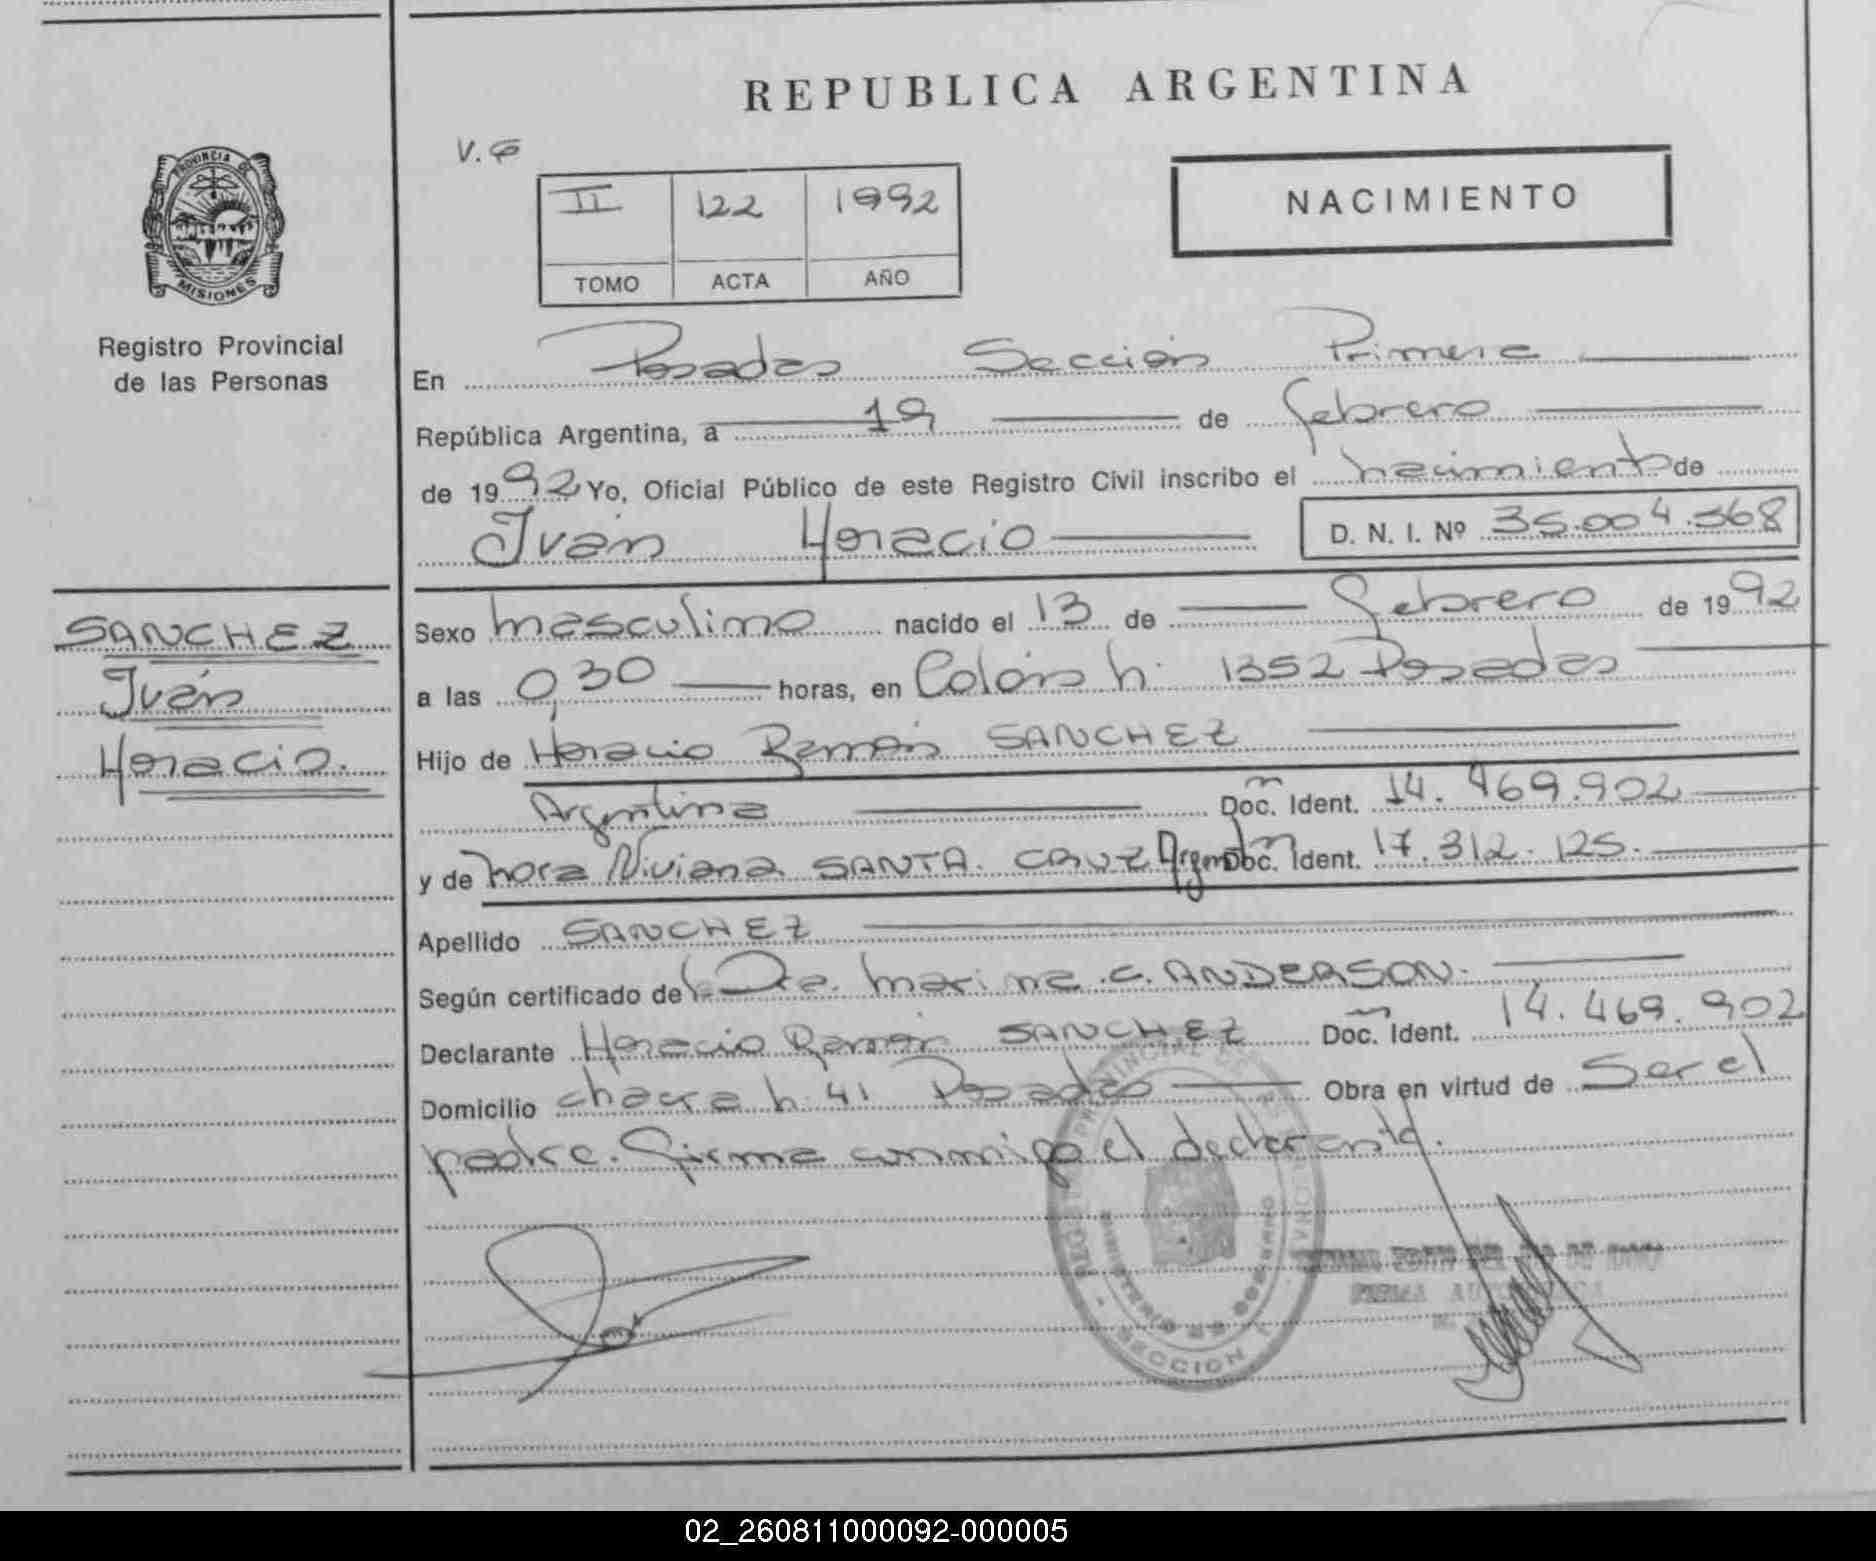 REPUBLICA ARGENTINA
V.
II 122 1992
TOMO ACTA AÑO
NACIMIENTO
PROVINCIA DE
MISIONES
Registro Provincial
de las Personas
En Posadas Sección Primera
República Argentina, a 19 de febrero
de 1992 Yo, Oficial Público de este Registro Civil inscribo el nacimiento de
Iván Horacio D. N. I. Nº 35.004.368
SANCHEZ
Iván
Horacio.
Sexo masculino nacido el 13 de febrero de 1992
a las 0,30 horas, en Colón n. 1352 Posadas
Hijo de Horacio Ramón SANCHEZ
Argentina Doc. Ident. 14.469.902
y de Nora Viviana SANTA CRUZ Argent Doc. Ident. 17.312.125.
Apellido SANCHEZ
Según certificado de la Dra. Marina C. ANDERSON.
Declarante Horacio Ramón SANCHEZ Doc. Ident. 14.469.902
Domicilio chacra n. 41 Posadas Obra en virtud de Ser el
padre. Firma conmigo el declarante.
MINISTERIO DE GOBIERNO
SECCION
FIRMA
02_260811000092-000005